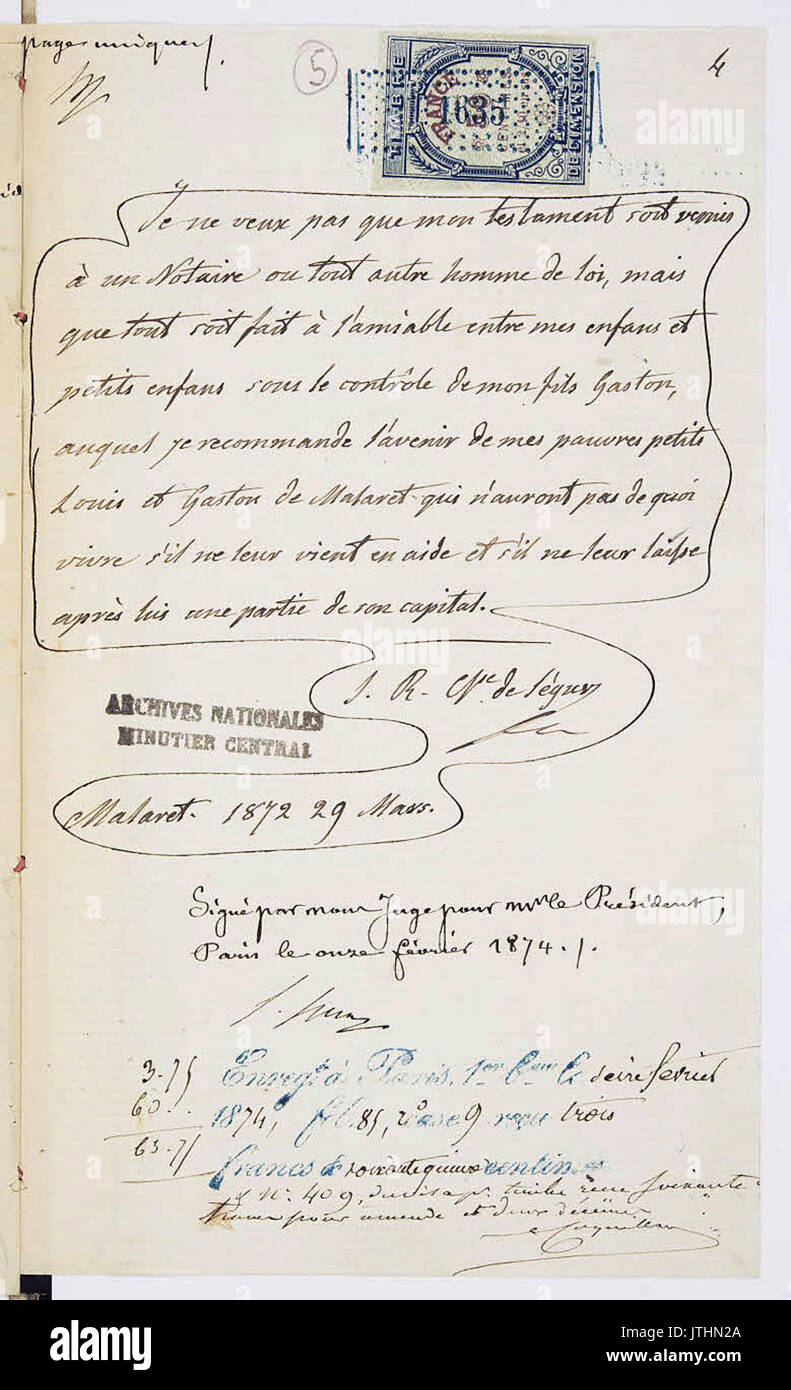 page unique
5
4
TIMBRE
FRANCE
1635
DE DIMENSION
Je ne veux pas que mon testament soit remis
à un Notaire ou tout autre homme de loi, mais
que tout soit fait à l'amiable entre mes enfans et
petits enfans sous le contrôle de mon fils Gaston,
auquel je recommande l'avenir de mes pauvres petits
Louis et Gaston de Malaret qui n'auront pas de quoi
vivre s'il ne leur vient en aide et s'il ne leur laisse
après lui une partie de son capital.
S. R. Csse de Ségur
ARCHIVES NATIONALES
MINUTIER CENTRAL
Malaret. 1872 29 Mars.
Signé par nous Juge pour Mr le Président,
Paris le onze février 1874./.
3.75 Enregt à Paris, 1er Beau le seize février
60 1874, fol. 85, Vo case 9 reçu trois
63.75 francs soixante quinze centimes
No. 409, timbre reçu soixante
francs pour amende et deux décimes
alamy
alamy stock photo
JTHN2A
www.alamy.com